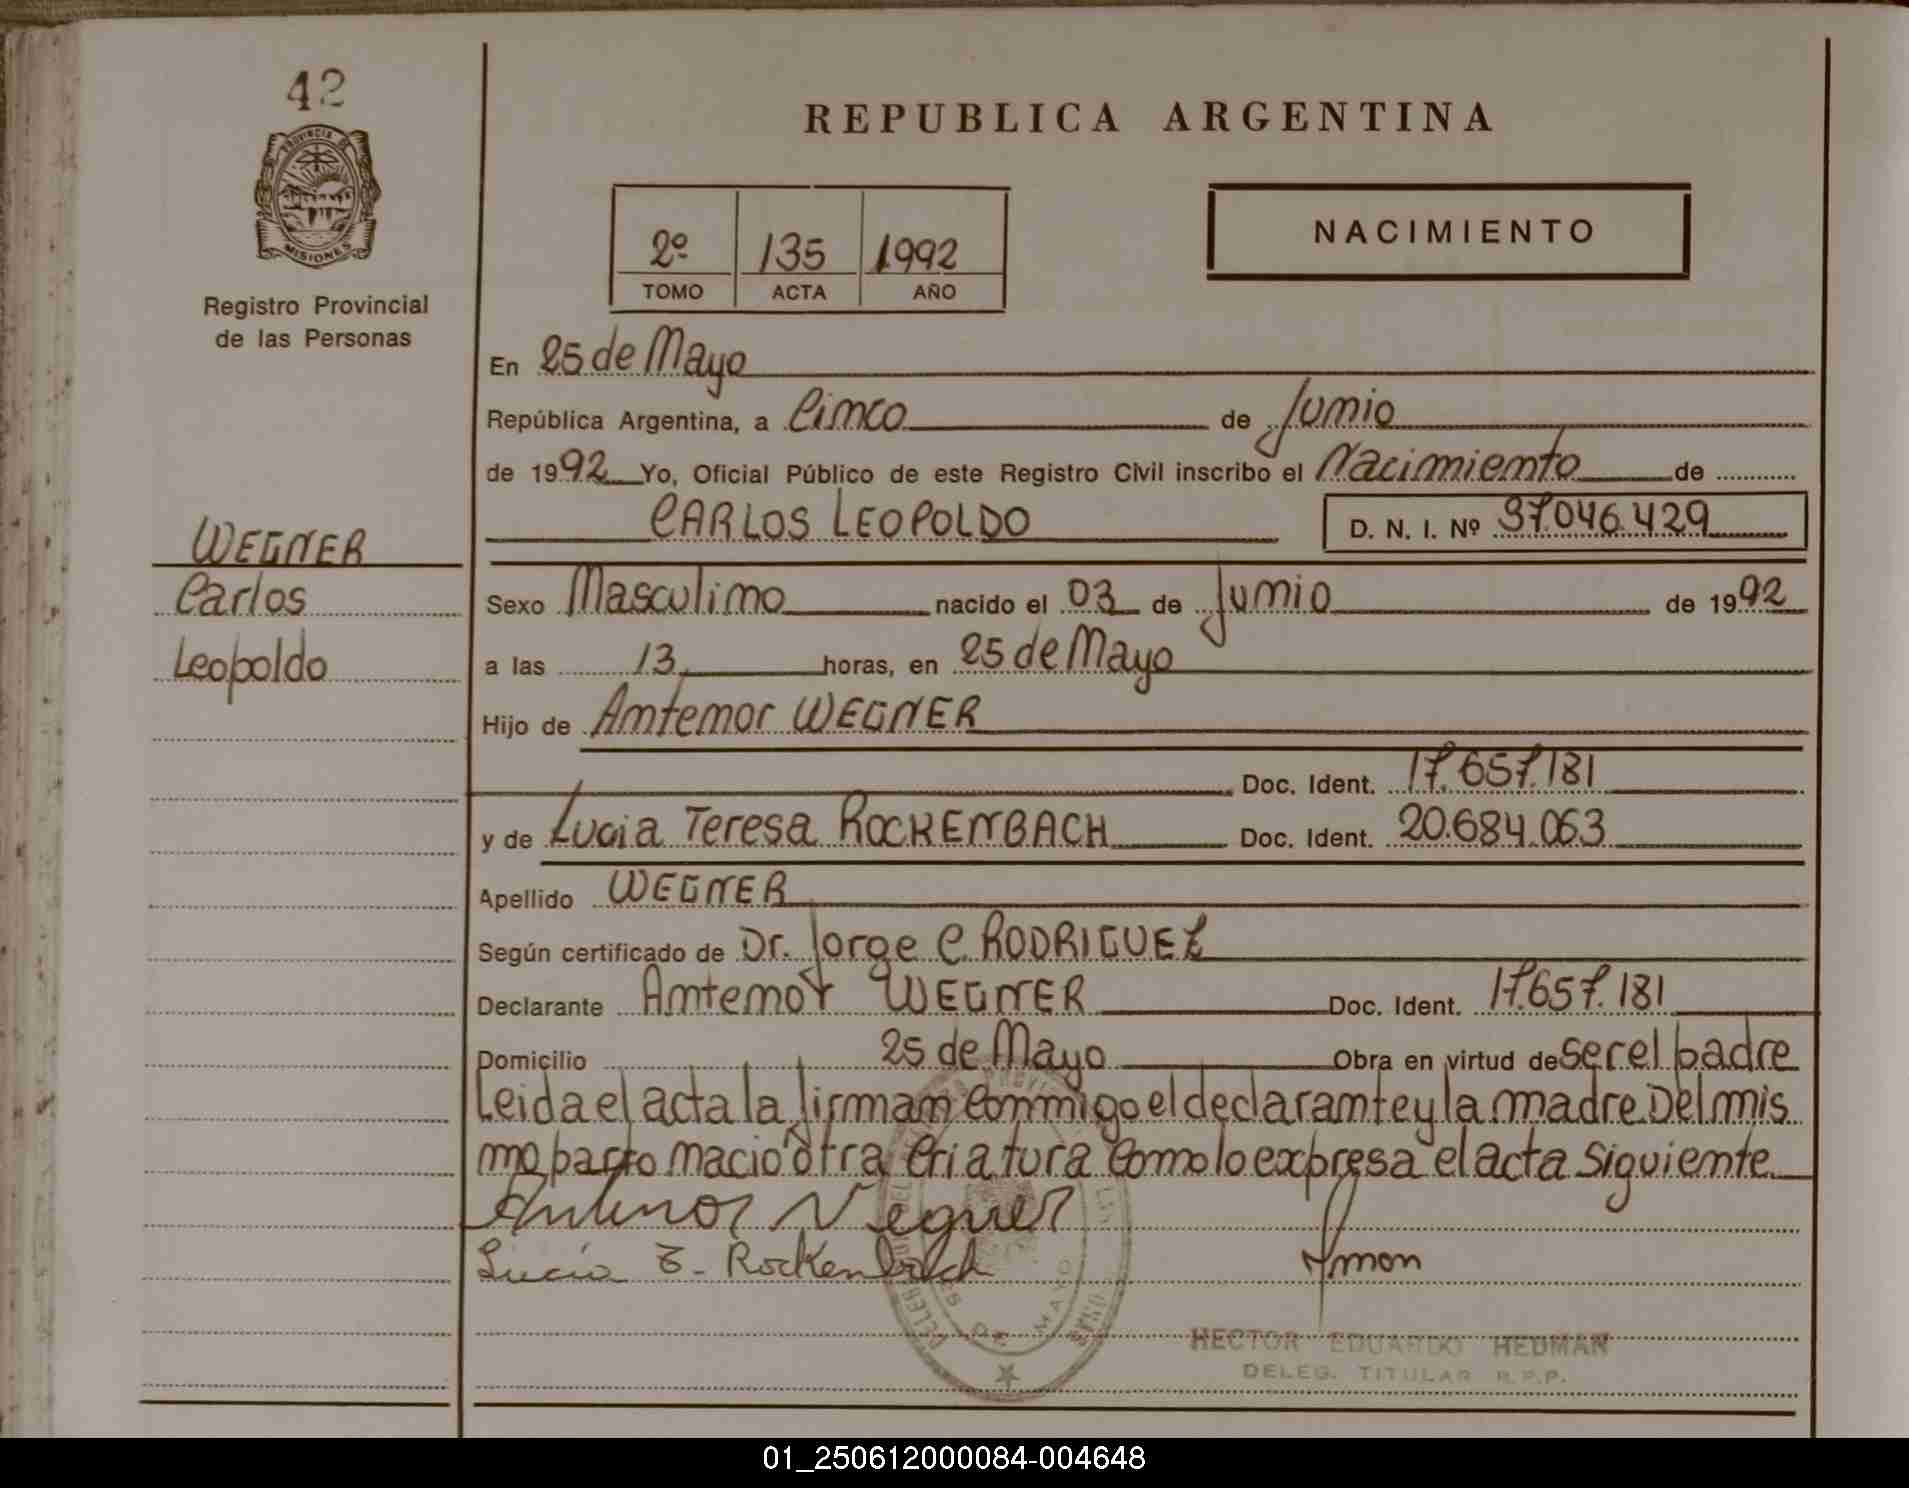 42
PROVINCIA DE
MISIONES
Registro Provincial
de las Personas
WEGNER
Carlos
Leopoldo
REPUBLICA ARGENTINA
2º 135 1992
TOMO ACTA AÑO
NACIMIENTO
En 25 de Mayo
República Argentina, a Cinco de Junio
de 1992 Yo, Oficial Público de este Registro Civil inscribo el Nacimiento de
CARLOS LEOPOLDO D. N. I. Nº 37.046.429
Sexo Masculino nacido el 03 de Junio de 1992
a las 13 horas, en 25 de Mayo
Hijo de Antenor WEGNER
Doc. Ident. 17.657.181
y de Lucia Teresa ROCKENBACH Doc. Ident. 20.684.063
Apellido WEGNER
Según certificado de Dr. Jorge C. RODRIGUEZ
Declarante Antenor WEGNER Doc. Ident. 17.657.181
Domicilio 25 de Mayo Obra en virtud de ser el padre
Leida el acta la firman conmigo el declarante y la madre. Del mis
mo parto nacio otra criatura como lo expresa el acta siguiente
Antenor Wegner
Lucía T. Rockenbach
25 DE MAYO
HECTOR EDUARDO HEDMAN
DELEG. TITULAR R.P.P.
01_250612000084-004648